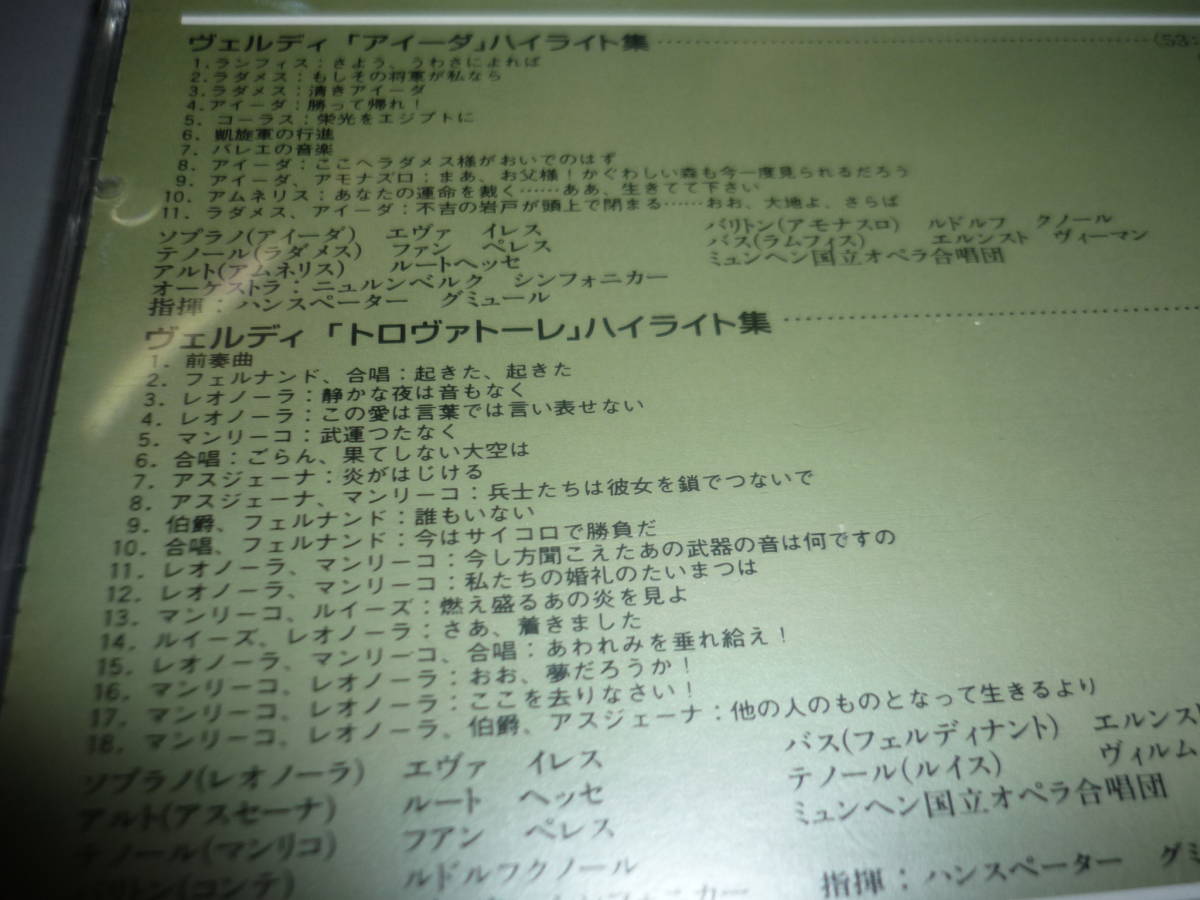 ヴェルディ「アイーダ」ハイライト集……(53:
1.ランフィス：さよう、うわさによれば
2.ラダメス：もしその将軍が私なら
3.ラダメス：清きアイーダ
4.アイーダ：勝って帰れ！
5.コーラス：栄光をエジプトに
6.凱旋軍の行進
7.バレエの音楽
8.アイーダ：ここへラダメス様がおいでのはず
9.アイーダ、アモナズロ：まあ、お父様！かぐわしい森も今一度見られるだろう
10.アムネリス：あなたの運命を裁く……ああ、生きてて下さい
11.ラダメス、アイーダ：不吉の岩戸が頭上で閉まる……おお、大地よ、さらば
ソプラノ(アイーダ) エヴァ イレス
テノール(ラダメス) ファン ペレス
アルト(アムネリス) ルートヘッセ
オーケストラ：ニュルンベルク シンフォニカー
指揮：ハンスペーター グミュール
バリトン(アモナスロ) ルドルフ クノール
バス(ラムフィス) エルンスト ヴィーマン
ミュンヘン国立オペラ合唱団
ヴェルディ「トロヴァトーレ」ハイライト集……
1.前奏曲
2.フェルナンド、合唱：起きた、起きた
3.レオノーラ：静かな夜は音もなく
4.レオノーラ：この愛は言葉では言い表せない
5.マンリーコ：武運つたなく
6.合唱：ごらん、果てしない大空は
7.アスジェーナ：炎がはじける
8.アスジェーナ、マンリーコ：兵士たちは彼女を鎖でつないで
9.伯爵、フェルナンド：誰もいない
10.合唱、フェルナンド：今はサイコロで勝負だ
11.レオノーラ、マンリーコ：今し方聞こえたあの武器の音は何ですの
12.レオノーラ、マンリーコ：私たちの婚礼のたいまつは
13.マンリーコ、ルイーズ：燃え盛るあの炎を見よ
14.ルイーズ、レオノーラ：さあ、着きました
15.レオノーラ、マンリーコ、合唱：あわれみを垂れ給え！
16.マンリーコ、レオノーラ：おお、夢だろうか！
17.マンリーコ、レオノーラ：ここを去りなさい！
18.マンリーコ、レオノーラ、伯爵、アスジェーナ：他の人のものとなって生きるより
ソプラノ(レオノーラ) エヴァ イレス
アルト(アスセーナ) ルート ヘッセ
テノール(マンリコ) フアン ペレス
バリトン(コンテ) ルドルフクノール
シンフォニカー
バス(フェルディナント) エルンスト
テノール(ルイス) ヴィルム
ミュンヘン国立オペラ合唱団
指揮：ハンスペーター グミ